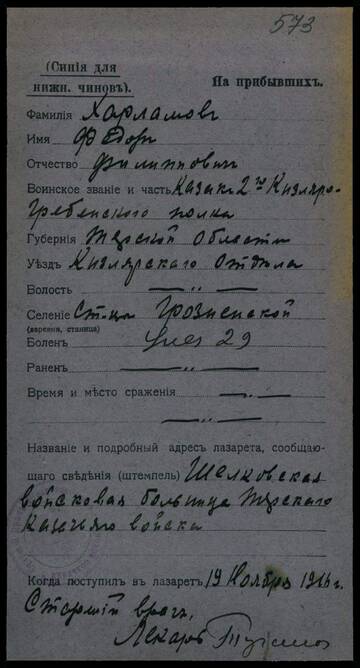 573
(Синія для
нижн. чиновъ).
На прибывшихъ.
Фамилія Харламовъ
Имя Фёдоръ
Отчество Филипповичъ
Воинское званіе и часть Казакъ 2го Кизляро-
Гребенского полка
Губернія Терской Области
Уѣздъ Кизлярскаго Отдѣла
Волость — „ —
Селеніе Ст-цы Грозненской
(деревня, станица)
Боленъ 29
Раненъ — „ —
Время и мѣсто сраженія — „ —
— „ —
Названіе и подробный адресъ лазарета, сообщаю-
щаго свѣдѣнія (штемпель) Шелковская
войсковая больница Терскаго
Казачьяго войска
Когда поступилъ въ лазаретъ 19 Ноября 1916 г.
Старшій врачъ,
Лекарь